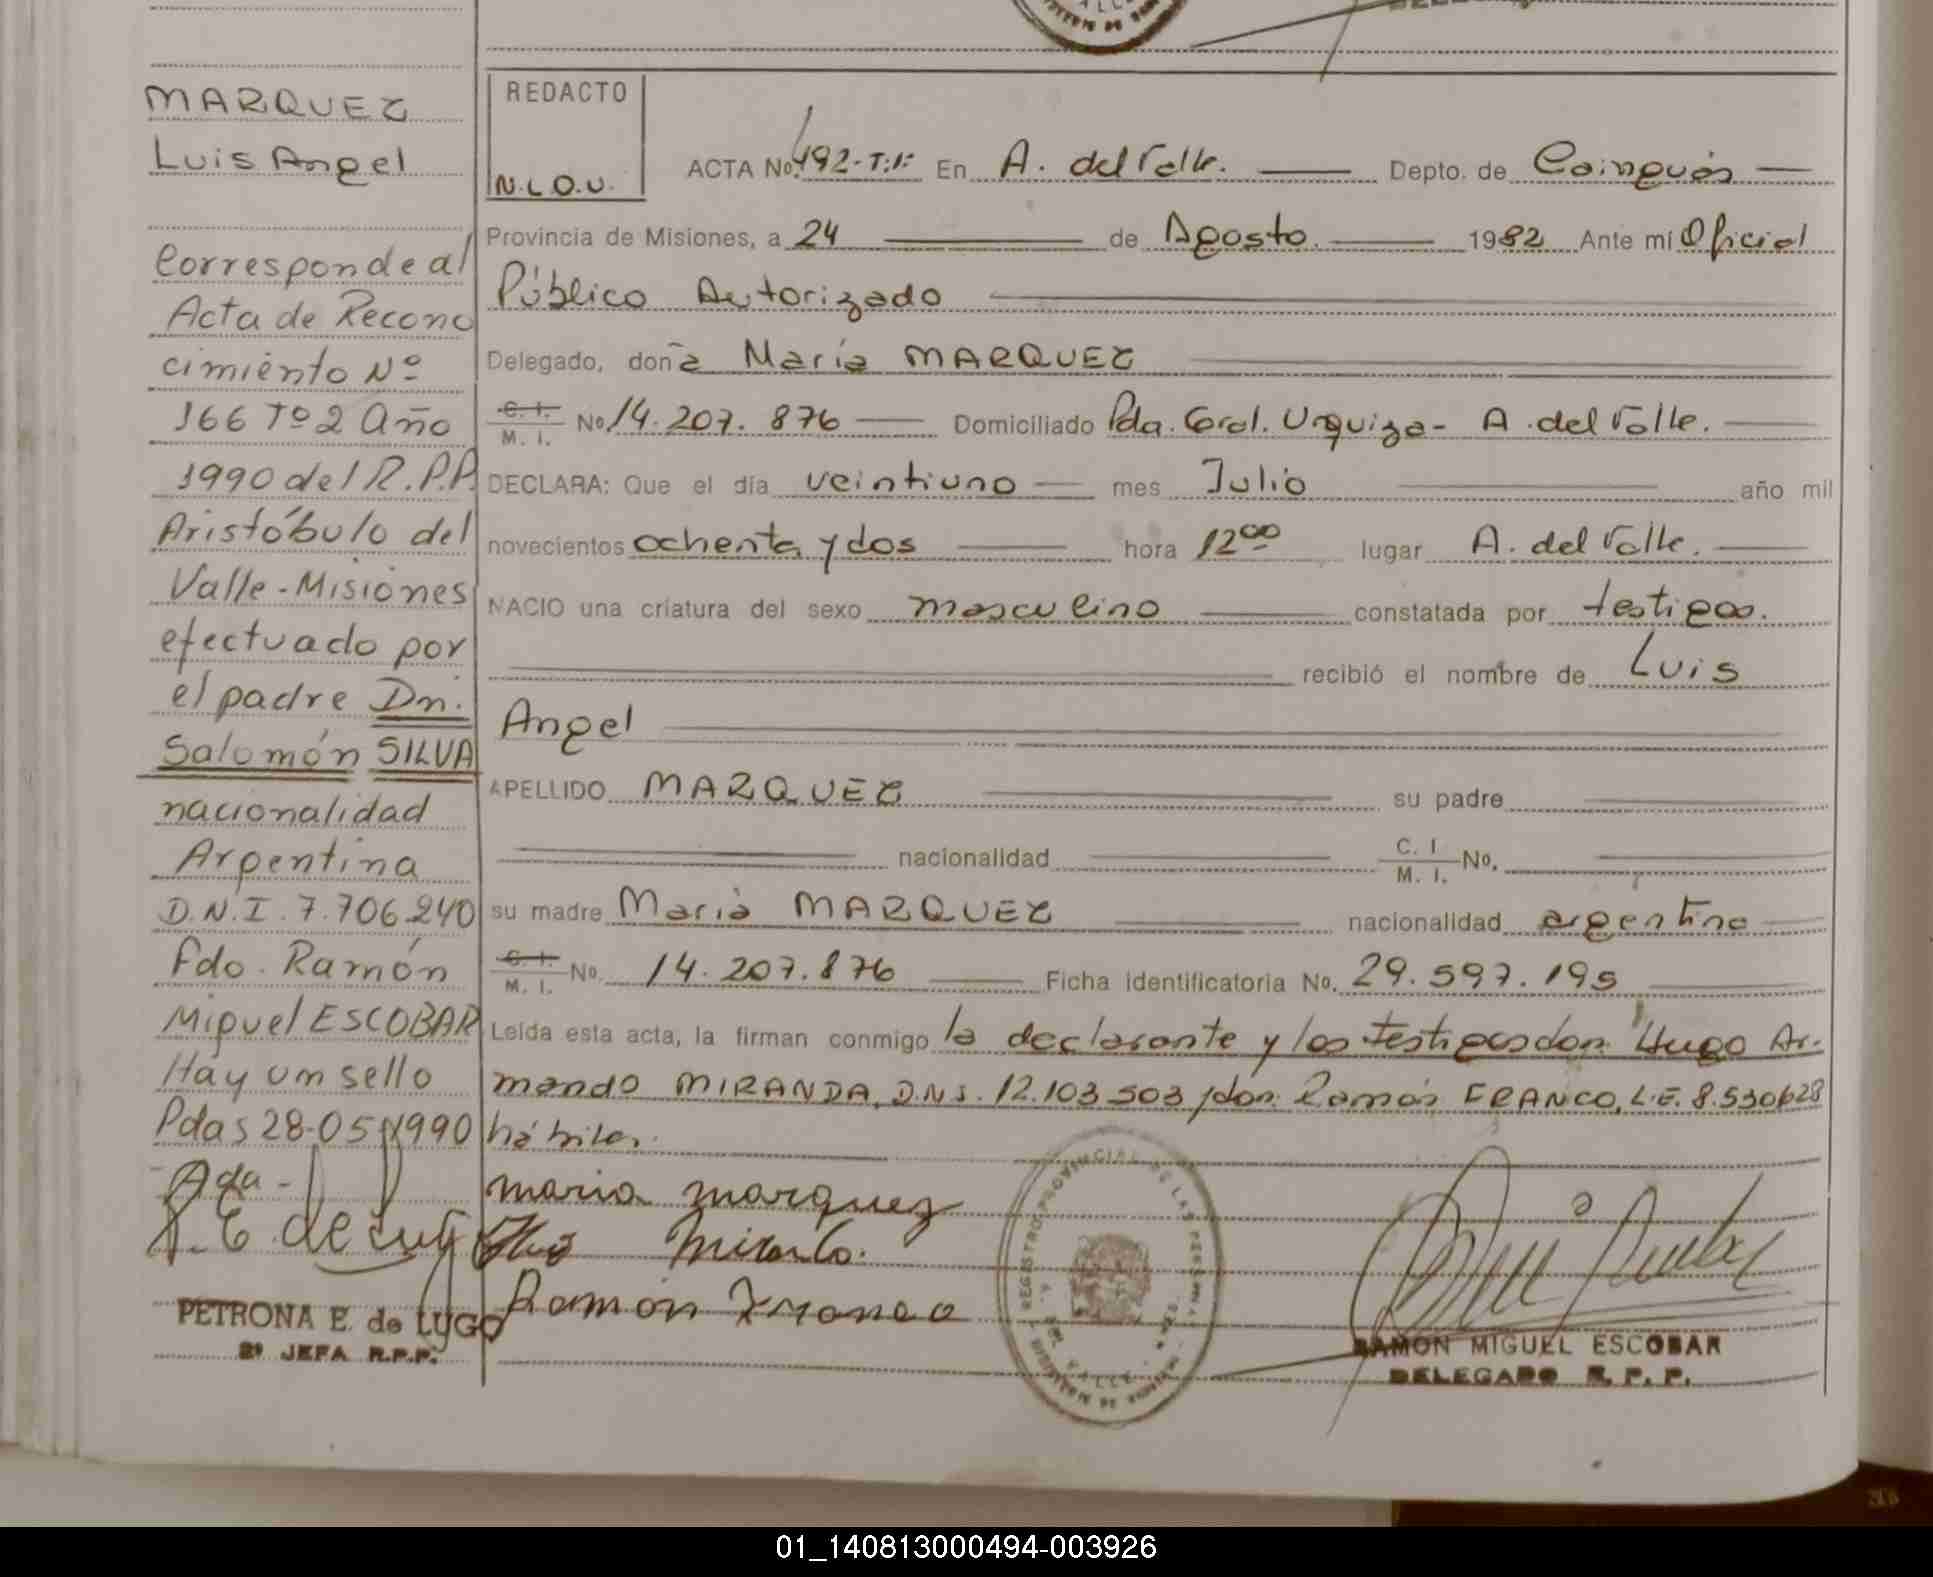 MARQUEZ
Luis Angel
Corresponde al
Acta de Recono
cimiento Nº
166 Tº 2 Año
1990 del R.P.P.
Aristóbulo del
Valle - Misiones
efectuado por
el padre Dn.
Salomón SILVA
nacionalidad
Argentina
D.N.I. 7.706.240
Fdo. Ramón
Miguel ESCOBAR
Hay un sello
Pdas 28-05-1990
PETRONA E. de LUGO
2ª JEFA R.P.P.
REDACTO
N.L.O.U.
ACTA No. 492-T.II: En A. del Valle. Depto. de Cainguás
Provincia de Misiones, a 24 de Agosto. 1982 Ante mí Oficial
Público Autorizado
Delegado, doña María MARQUEZ
C. I. M. I. No 14.207.876 Domiciliado Pda. Gral. Urquiza - A. del Valle.
DECLARA: Que el día veintiuno mes Julio año mil
novecientos ochenta y dos hora 1200 lugar A. del Valle.
NACIO una criatura del sexo masculino constatada por testigos.
recibió el nombre de Luis
Angel
APELLIDO MARQUEZ su padre
nacionalidad C. I. M. I. No.
su madre María MARQUEZ nacionalidad argentina
C. I. M. I. No. 14.207.876 Ficha identificatoria No. 29.597.195
Leída esta acta, la firman conmigo la declarante y los testigos don Hugo Ar-
mando MIRANDA, D.N.I. 12.103.503 y don Ramón FRANCO, L.E. 8.530628
hábiles.
maria marquez
Ramón Franco
REGISTRO PROVINCIAL DE LAS PERSONAS
DEL VALLE
RAMON MIGUEL ESCOBAR
DELEGADO R. P. P.
01_140813000494-003926